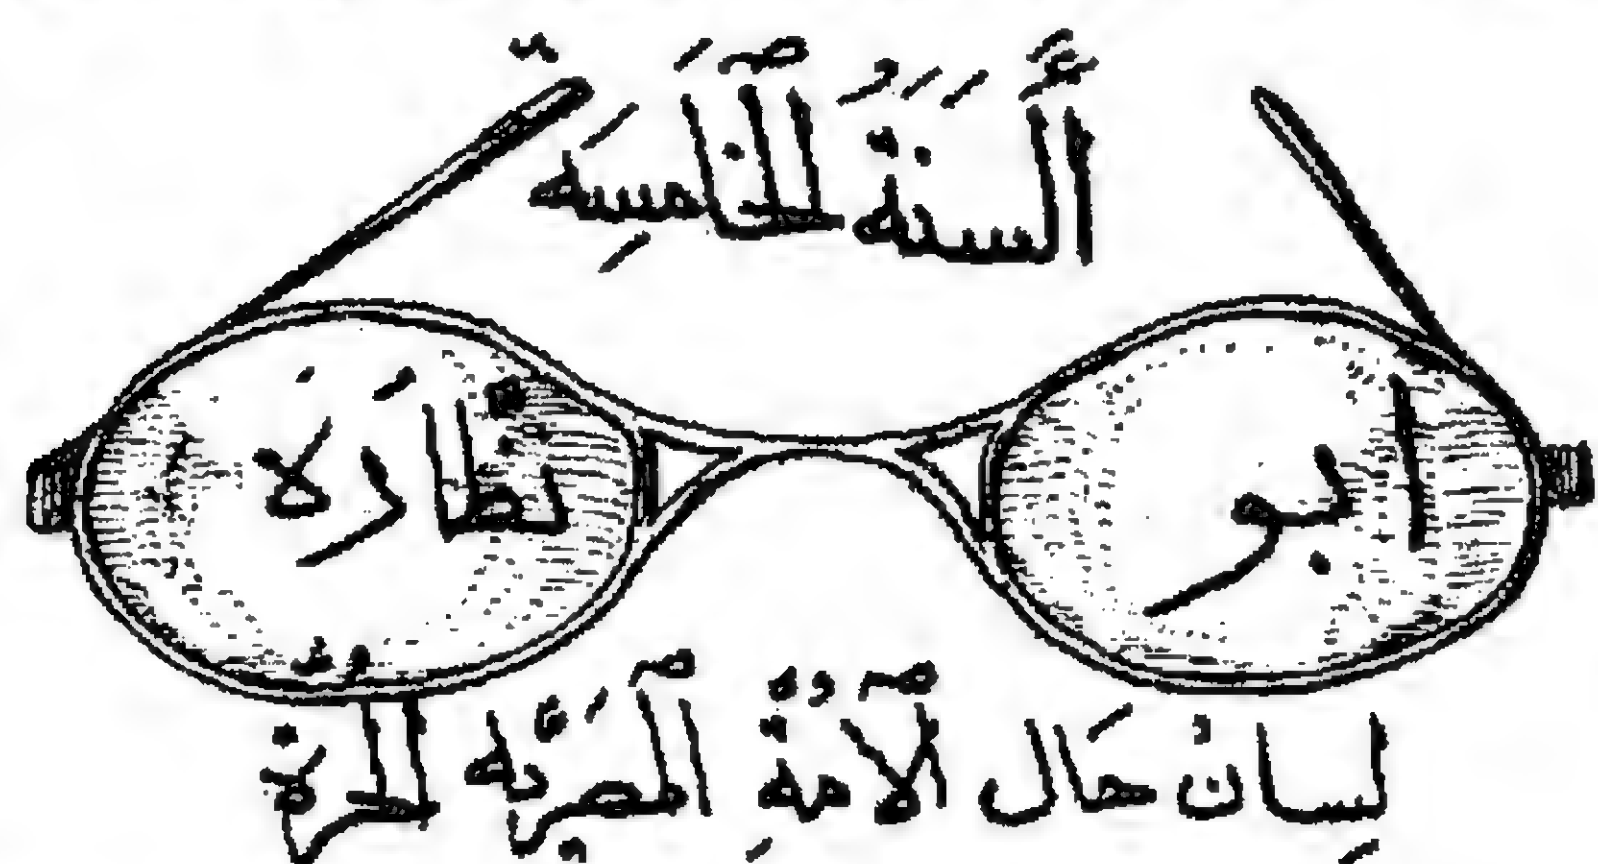 السَّنَةُ الْخَامِسَةُ
ابو نظَّارَة
لِسَانُ حَال الأُمَّةِ الْمِصْرِيَّةِ الحُرَّة